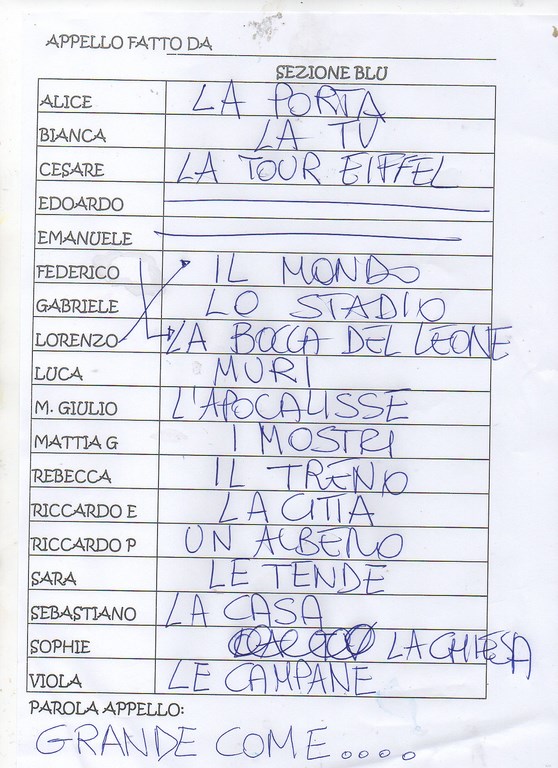 APPELLO FATTO DA
SEZIONE BLU
ALICE LA PORTA
BIANCA LA TV
CESARE LA TOUR EIFFEL
EDOARDO
EMANUELE
FEDERICO IL MONDO
GABRIELE LO STADIO
LORENZO LA BOCCA DEL LEONE
LUCA MURI
M. GIULIO L'APOCALISSE
MATTIA G I MOSTRI
REBECCA IL TRENO
RICCARDO E LA CITTA
RICCARDO P UN ALBERO
SARA LE TENDE
SEBASTIANO LA CASA
SOPHIE LA CHIESA
VIOLA LE CAMPANE
PAROLA APPELLO:
GRANDE COME....